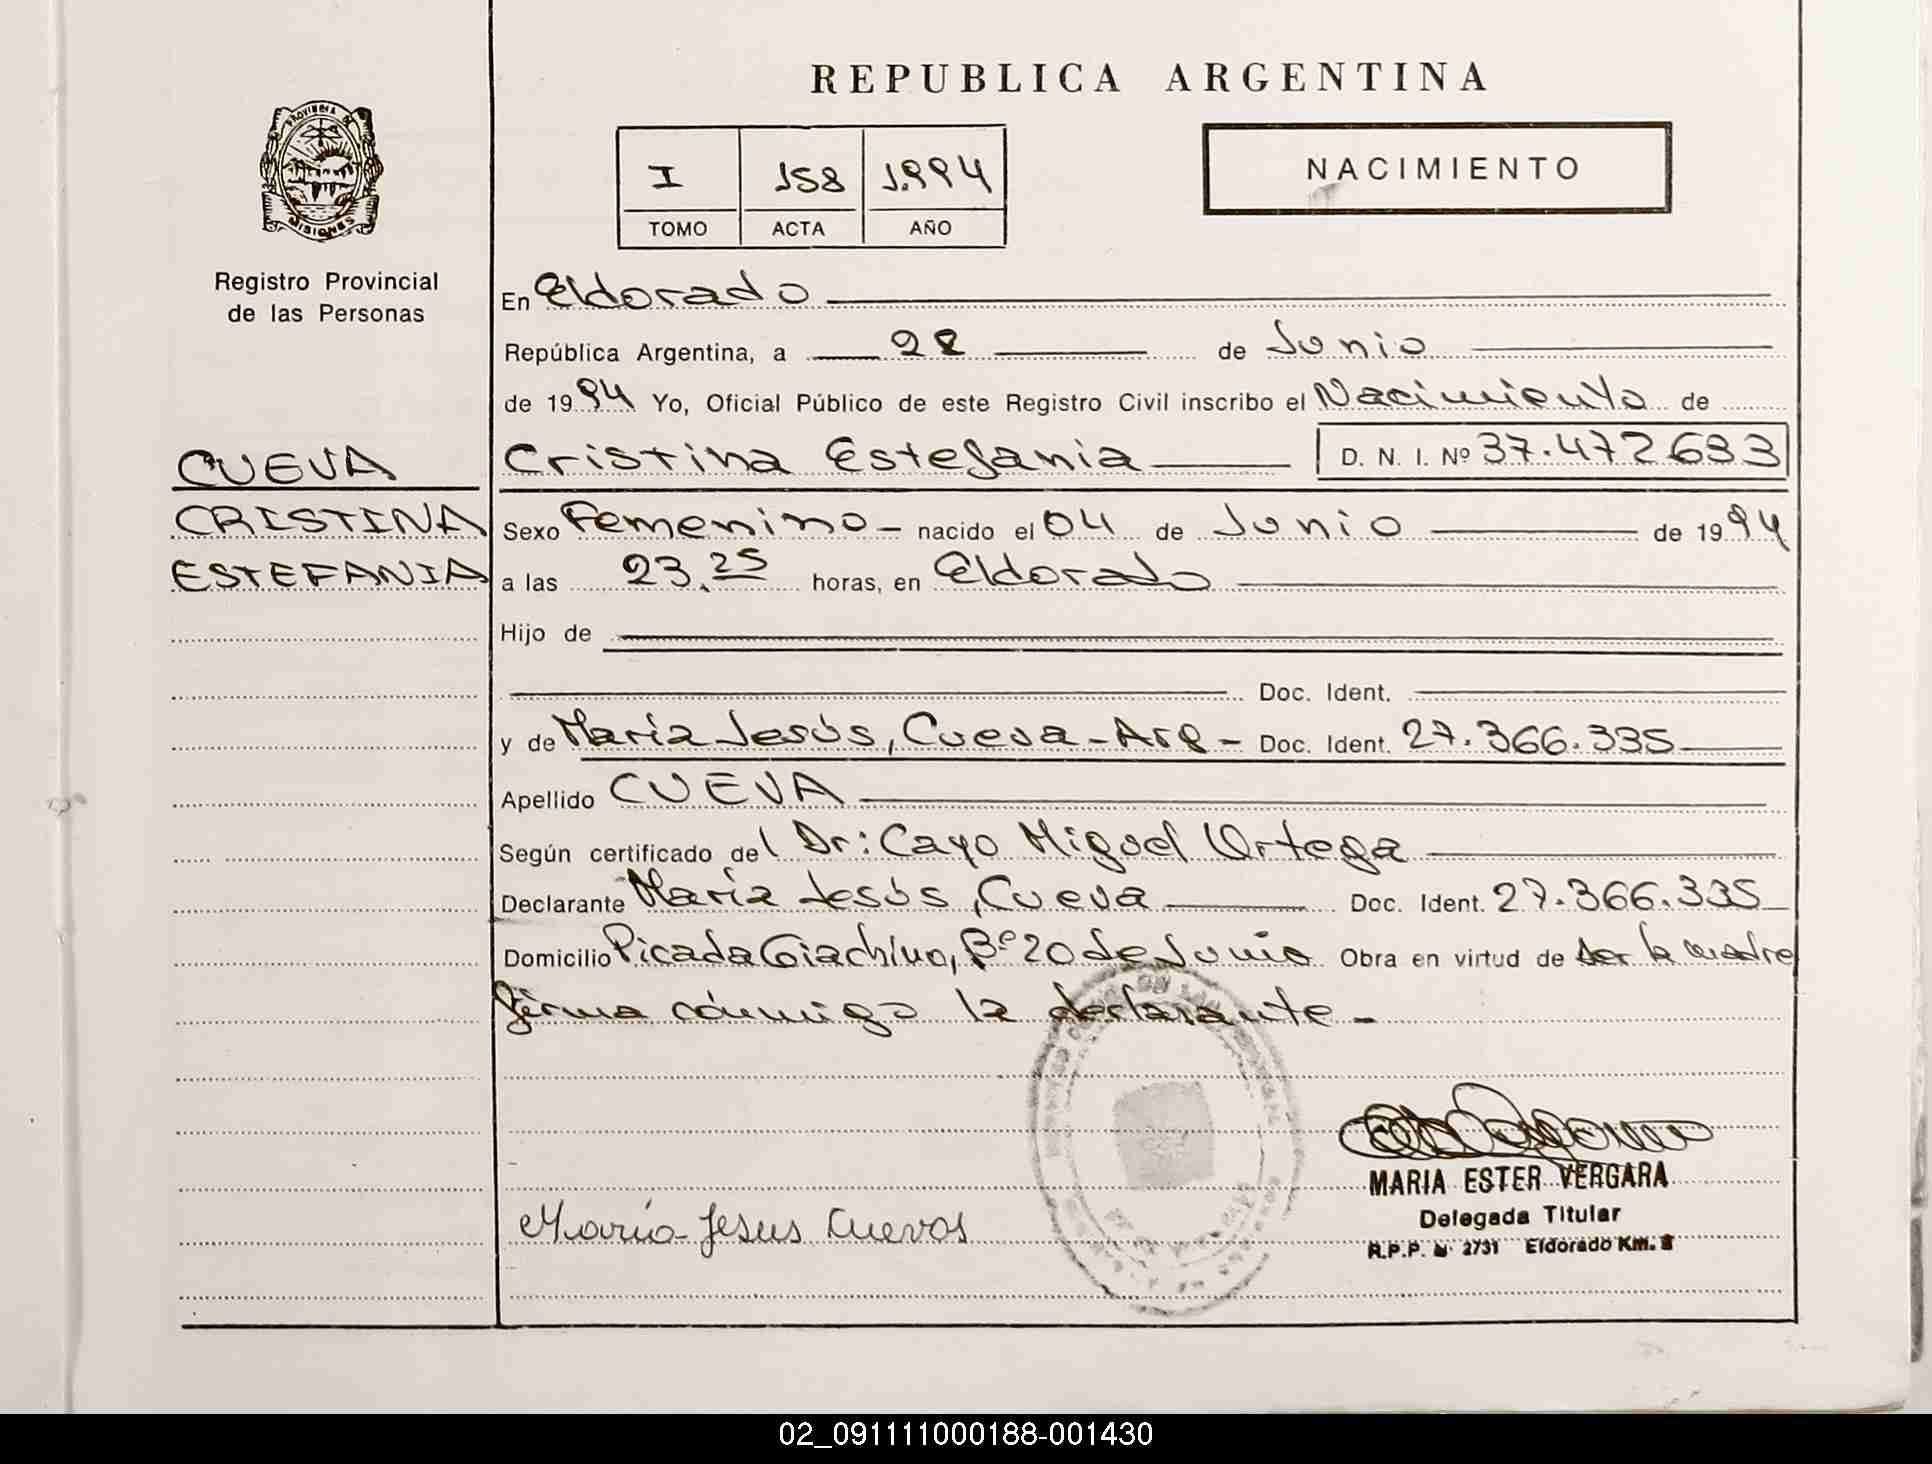 REPUBLICA ARGENTINA
PROVINCIA DE
MISIONES
I 158 1.994
TOMO ACTA AÑO
NACIMIENTO
Registro Provincial
de las Personas
En Eldorado
República Argentina, a 28 de Junio
de 1994 Yo, Oficial Público de este Registro Civil inscribo el Nacimiento de
CUEVA
Cristina Estefania D. N. I. Nº 37.472.683
CRISTINA
Sexo Femenino - nacido el 04 de Junio de 1994
ESTEFANIA
a las 23.25 horas, en Eldorado
Hijo de
Doc. Ident.
y de María Jesús, Cueva - Arg - Doc. Ident. 27.366.335
Apellido CUEVA
Según certificado del Dr: Cayo Miguel Ortega
Declarante María Jesús, Cueva Doc. Ident. 27.366.335
Domicilio Picada Giachino, Bº 20 de Junio Obra en virtud de ser la madre
firma conmigo la declarante. -
MARIA ESTER VERGARA
Maria Jesus Cuevas
Delegada Titular
R.P.P. N· 2731 Eldorado Km. 8
02_091111000188-001430